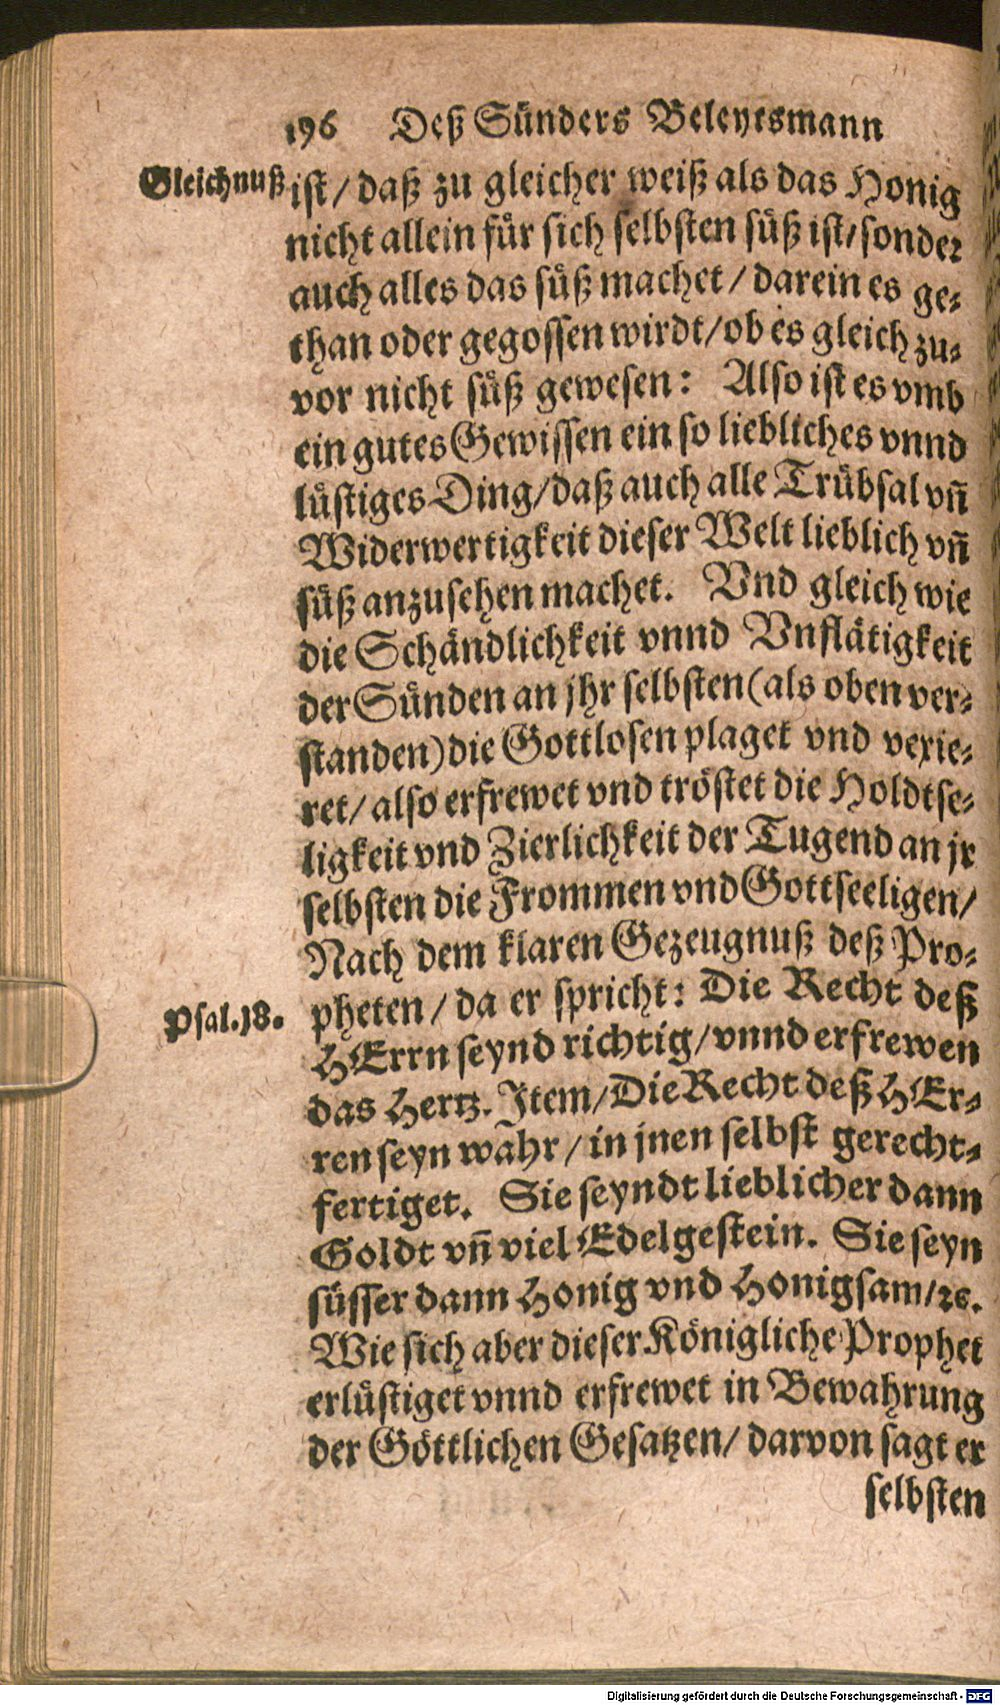 196 Deß Sünders Beleytesmann
Gleichnuß
ist / daß zu gleicher weiß als das Honig
nicht allein für sich selbsten süß ist / sonder
auch alles das süß machet / darein es ge-
than oder gegossen wirdt / ob es gleich zu-
vor nicht süß gewesen: Also ist es vmb
ein gutes Gewissen ein so liebliches vnnd
lüstiges Ding / daß auch alle Trübsal vñ
Widerwertigkeit dieser Welt lieblich vñ
süß anzusehen machet. Vnd gleich wie
die Schändlichkeit vnnd Vnflätigkeit
der Sünden an jhr selbsten (als oben ver-
standen) die Gottlosen plaget vnd vexie-
ret / also erfrewet vnd tröstet die Holdtse-
ligkeit vnd Zierlichkeit der Tugend an jr
selbsten die Frommen vnd Gottseeligen /
Nach dem klaren Gezeugnuß deß Pro-
Psal. 18.
pheten / da er spricht: Die Recht deß
HErrn seynd richtig / vnnd erfrewen
das Hertz. Item / Die Recht deß HEr-
ren seyn wahr / in jnen selbst gerecht-
fertiget. Sie seyndt lieblicher dann
Goldt vñ viel Edelgestein. Sie seyn
süsser dann Honig vnd Honigsam / ꝛc.
Wie sich aber dieser Königliche Prophet
erlüstiget vnnd erfrewet in Bewahrung
der Göttlichen Gesatzen / darvon sagt er
selbsten
Digitalisierung gefördert durch die Deutsche Forschungsgemeinschaft - DFG